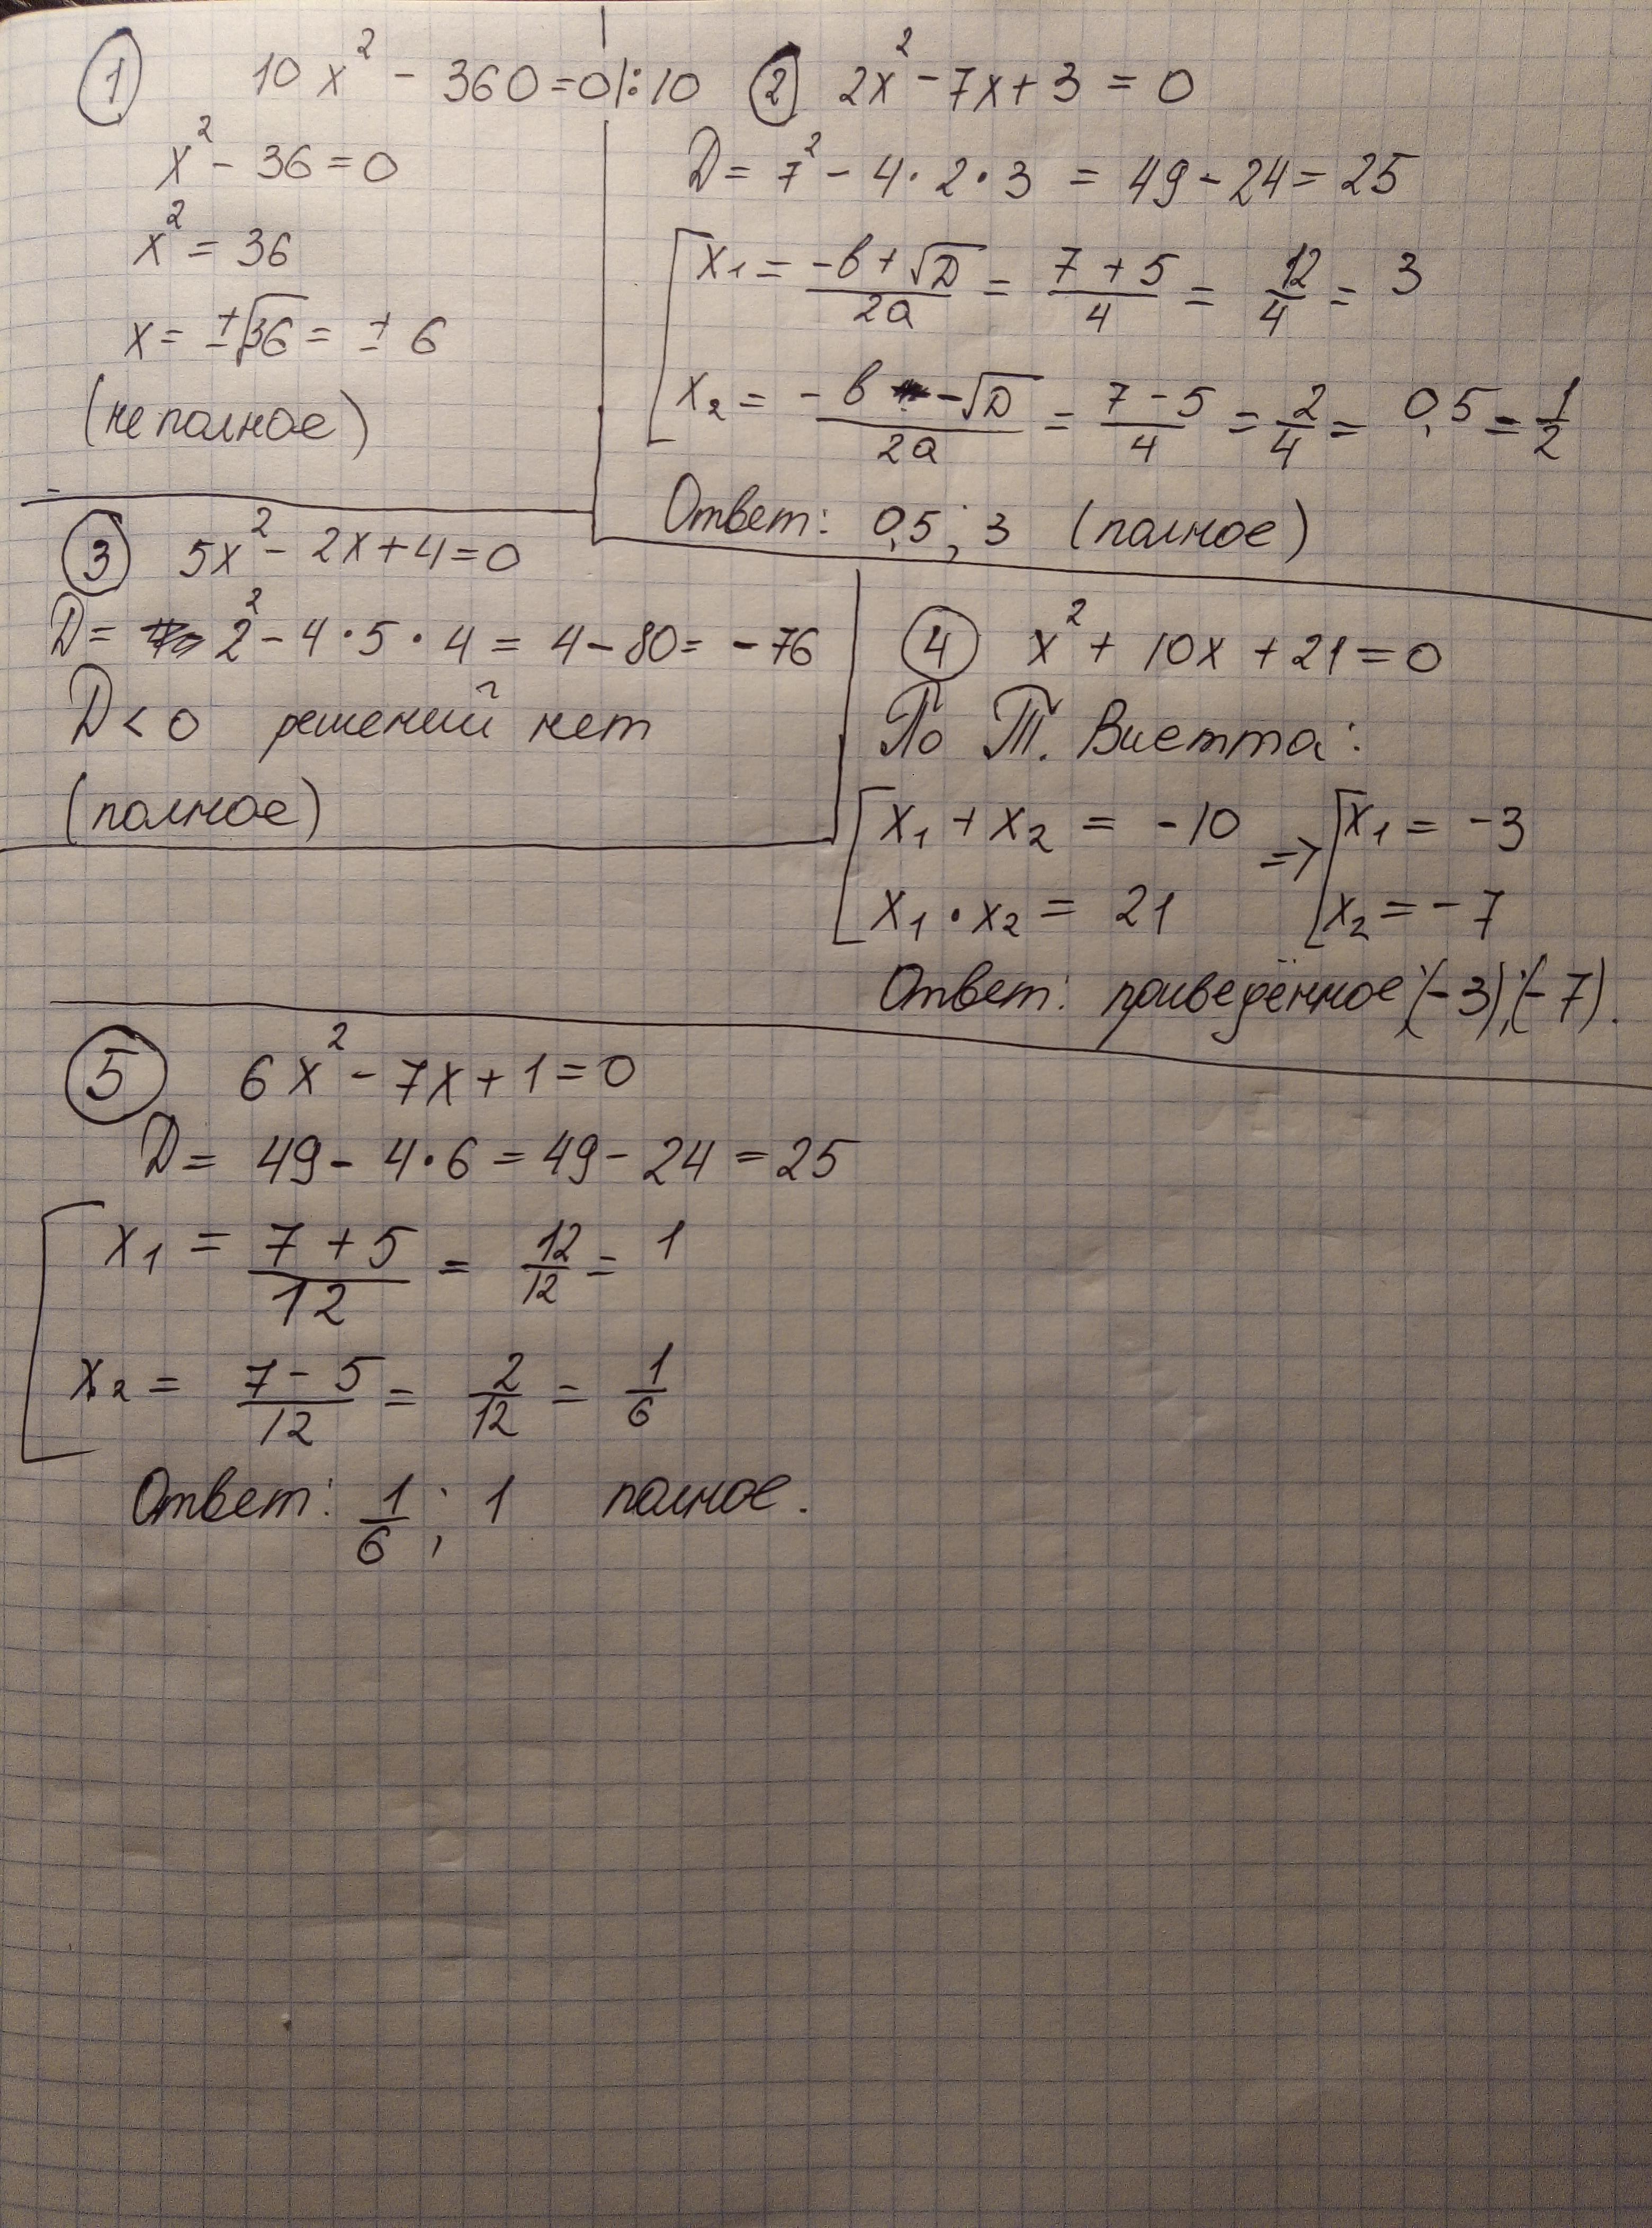 ① 10x² - 360 = 0 |:10
x² - 36 = 0
x² = 36
x = ±√36 = ± 6
(не полное)
② 2x² - 7x + 3 = 0
D = 7² - 4 · 2 · 3 = 49 - 24 = 25
x₁ = (-b + √D)/2a = (7 + 5)/4 = 12/4 = 3
x₂ = (-b - √D)/2a = (7 - 5)/4 = 2/4 = 0,5 = 1/2
Ответ: 0,5 ; 3 (полное)
③ 5x² - 2x + 4 = 0
D = 2² - 4 · 5 · 4 = 4 - 80 = - 76
D < 0 решений нет
(полное)
④ x² + 10x + 21 = 0
По Т. Виетта:
[ x₁ + x₂ = - 10 => [ x₁ = - 3
x₁ · x₂ = 21 x₂ = - 7
Ответ: приведённое; (- 3); (- 7).
⑤ 6x² - 7x + 1 = 0
D = 49 - 4 · 6 = 49 - 24 = 25
x₁ = (7 + 5)/12 = 12/12 = 1
x₂ = (7 - 5)/12 = 2/12 = 1/6
Ответ: 1/6 ; 1 полное.